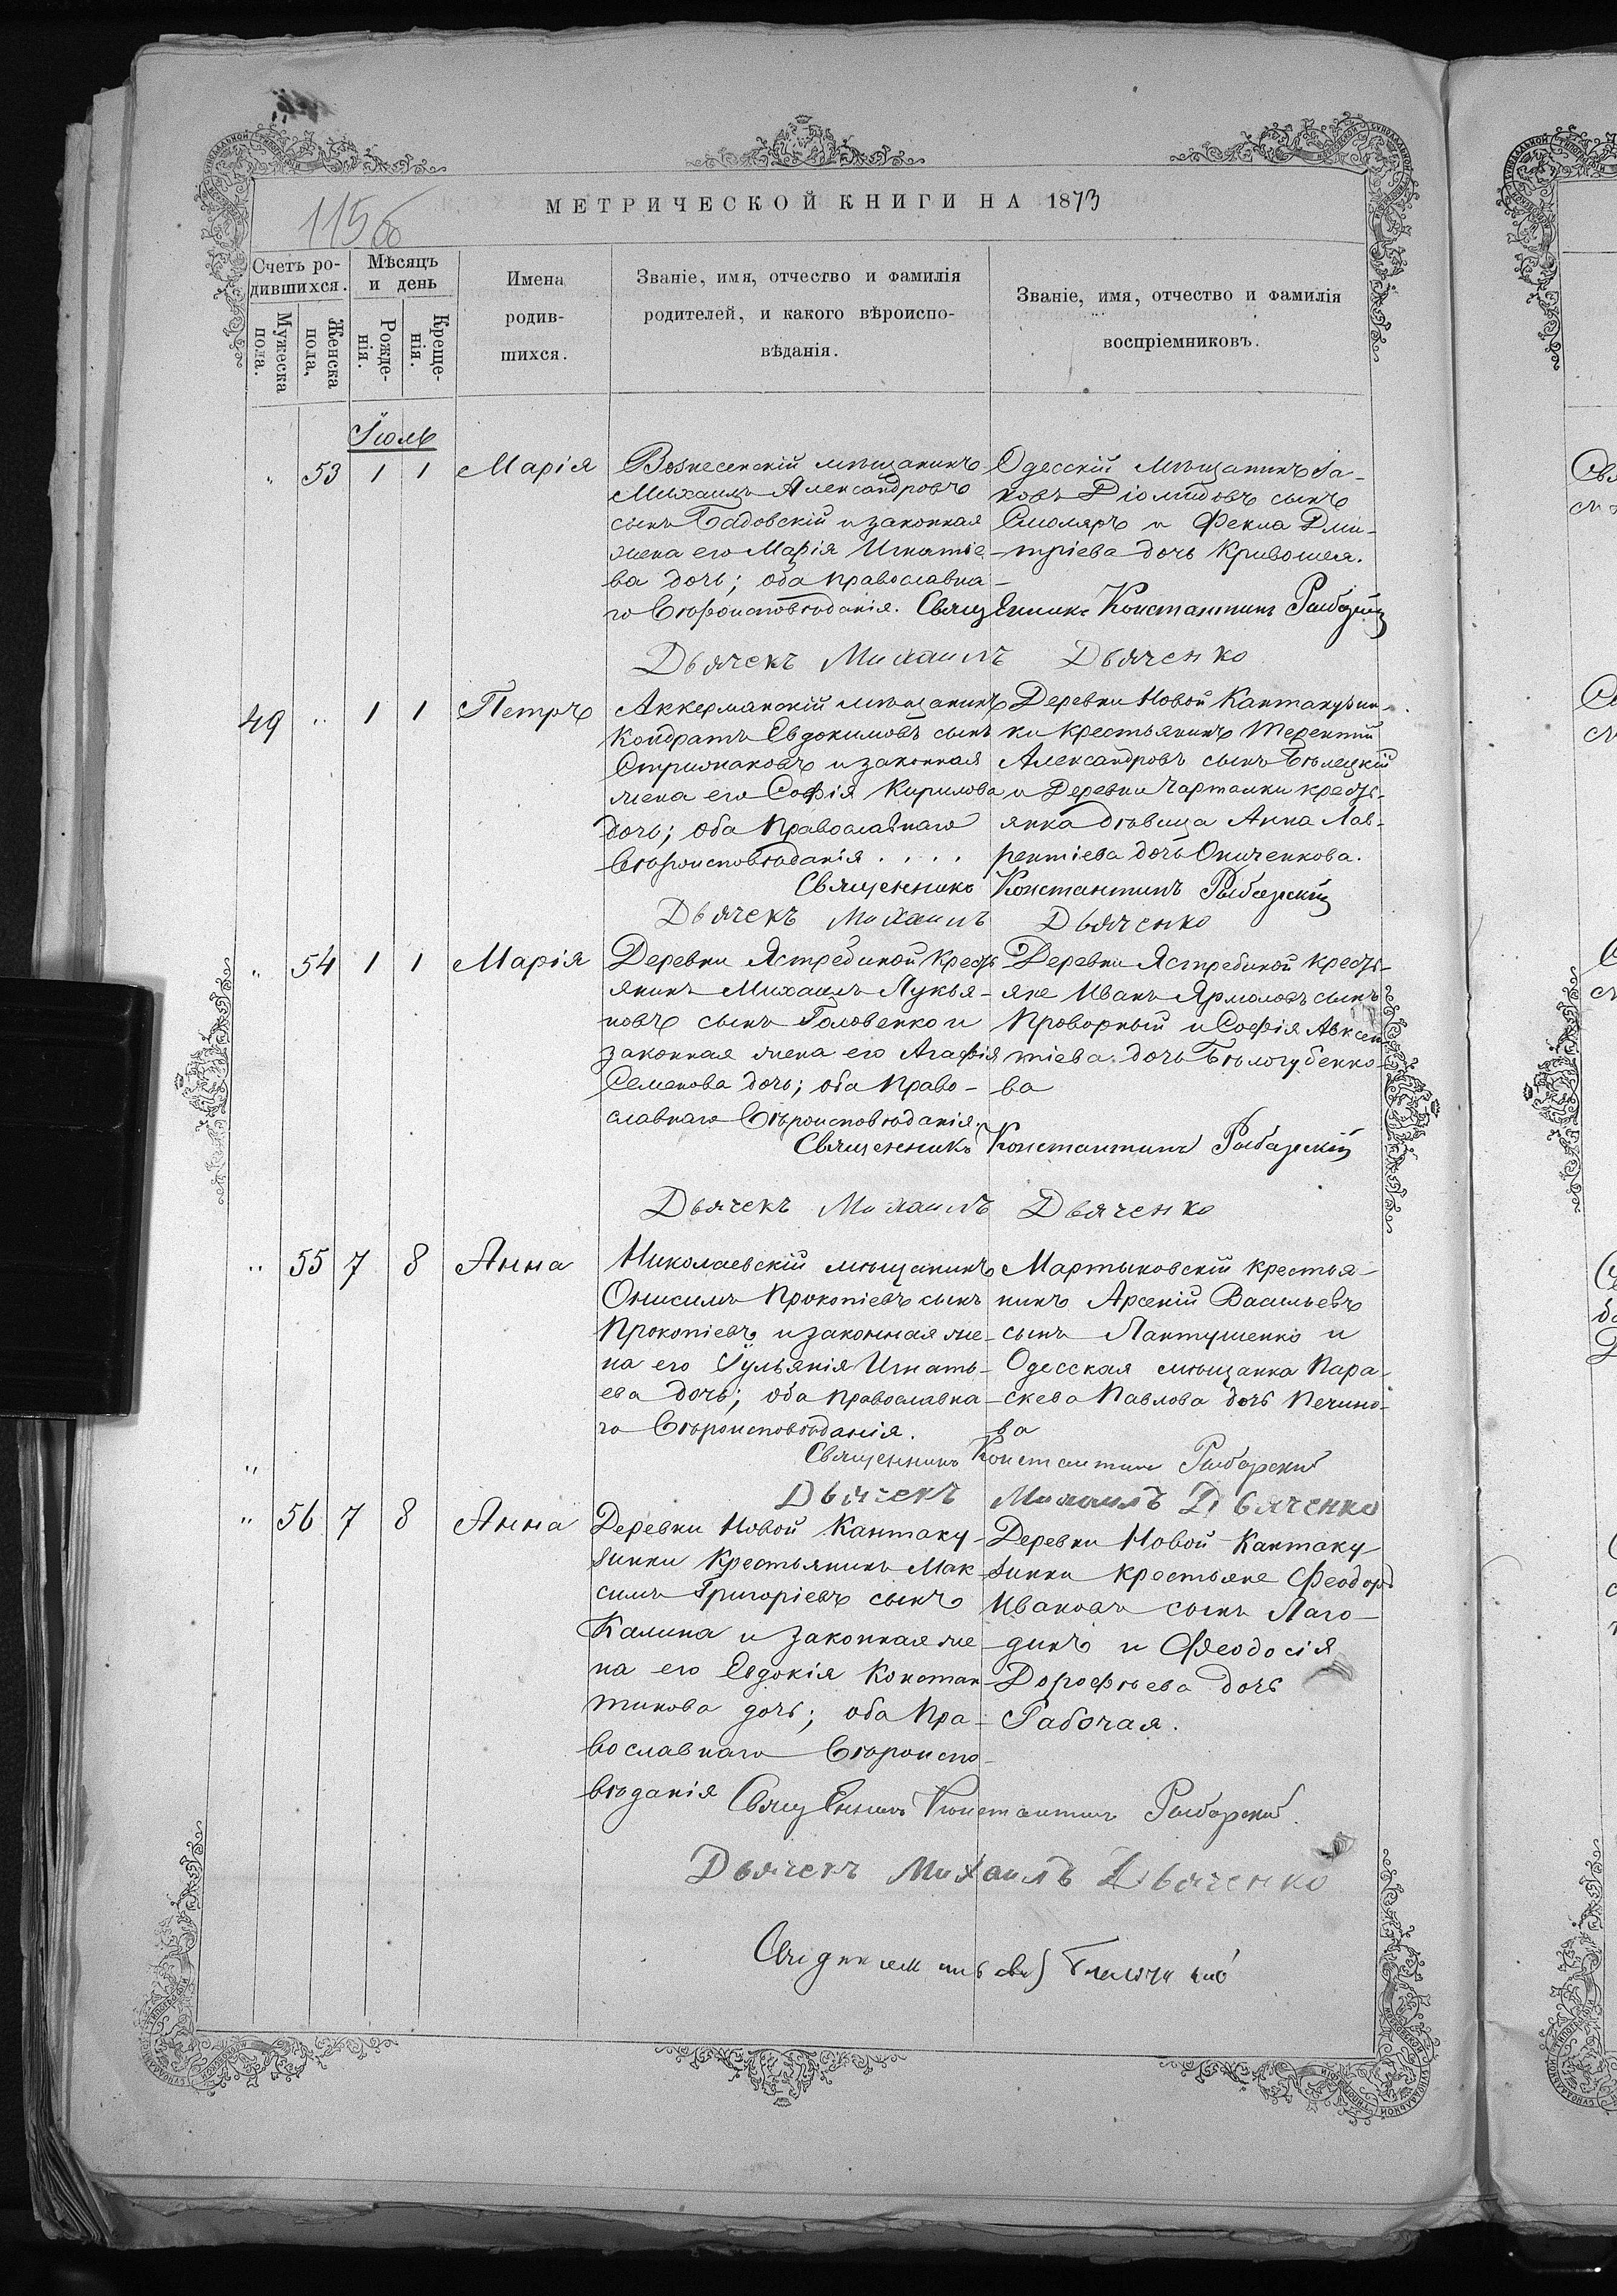 МЕТРИЧЕСКОЙ КНИГИ НА 1873
115 об
Счетъ родившихся.
Мѣсяцъ и день
Имена родившихся.
Званіе, имя, отчество и фамилія родителей, и какого вѣроисповѣданія.
Званіе, имя, отчество и фамилія воспріемниковъ.
Мужеска пола.
Женска пола.
Рожденія.
Крещенія.
Іюль
" 53 1 1 Марія
Вознесенскій мѣщанинъ
Михаилъ Александровъ
сынъ Бадовскій и законная
жена его Марія Игнатіе-
ва дочь; оба православна-
го Вѣроисповѣданія.
Одесскій мѣщанинъ Іа-
ковъ Діомидовъ сынъ
Смоляръ и Фекла Дми-
тріева дочь Кривошея.
Священникъ Константинъ
Дьячекъ Михаилъ Дьяченко
49 " 1 1 Петръ
Аккерманскій мѣщанинъ
Кондратъ Евдокимовъ сынъ
и законная
жена его Софія Кирилова
дочь; оба Православнаго
Вѣроисповѣданія . . . .
Деревни Новой Кантакузин-
ки крестьянинъ Терентій
Александровъ сынъ Бѣлецкій
и Деревни Чарталки кресть-
янка дѣвица Анна Лав-
рентіева дочь Ониченкова.
Священникъ Константинъ
Дьячекъ Михаилъ Дьяченко
" 54 1 1 Марія
Деревни Ястребиной Кресть-
янинъ Михаилъ Лукья-
новъ сынъ Головенко и
законная жена его Агафія
Семенова дочь; оба Право-
славнаго Вѣроисповѣданія.
Деревни Ястребиной кресть-
яне Иванъ Ярмоловъ сынъ
Проворный и Софія Авксен
тіева дочь Бѣлогубенко-
ва
Священникъ Константинъ
Дьячекъ Михаилъ Дьяченко
" 55 7 8 Анна
Николаевскій мѣщанинъ
Онисимъ Прокопіевъ сынъ
Прокопіевъ и законная же-
на его Іульянія Игнать-
ева дочь; оба Православна-
го Вѣроисповѣданія.
Мартыновскій крестья-
нинъ Арсеній Васильевъ
сынъ Лантушенко и
Одесская мѣщанка Пара-
скева Павлова дочь Печино-
ва
Священникъ Константинъ
"
Дьячекъ Михаилъ Дьяченко
" 56 7 8 Анна
Деревни Новой Кантаку-
зинки Крестьянинъ Мак-
симъ Григоріевъ сынъ
Калина и законная же-
на его Евдокія Констан
тинова дочь; оба Пра-
вославнаго Вѣроиспо-
вѣданія
Деревни Новой Кантаку
зинки крестьяне Феодоръ
Ивановъ сынъ Лаго-
динъ и Феодосія
Дорофѣева дочь
Рабочая.
Священникъ Константинъ
Дьячекъ Михаилъ Дьяченко